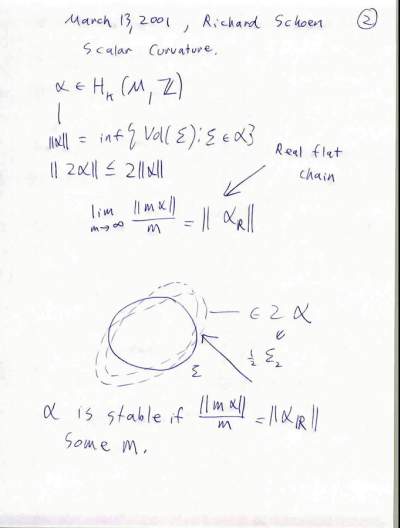 March 13, 2001, Richard Schoen ②
Scalar Curvature.
α ∈ H_k (M, ℤ)
‖α‖ = inf { Vol(Σ) : Σ ∈ α }
‖2α‖ ≤ 2‖α‖
Real flat
chain
lim_{m→∞} ‖mα‖/m = ‖α_ℝ‖
∈ 2α
½ Σ₂
Σ
α is stable if ‖mα‖/m = ‖α_ℝ‖
some m.